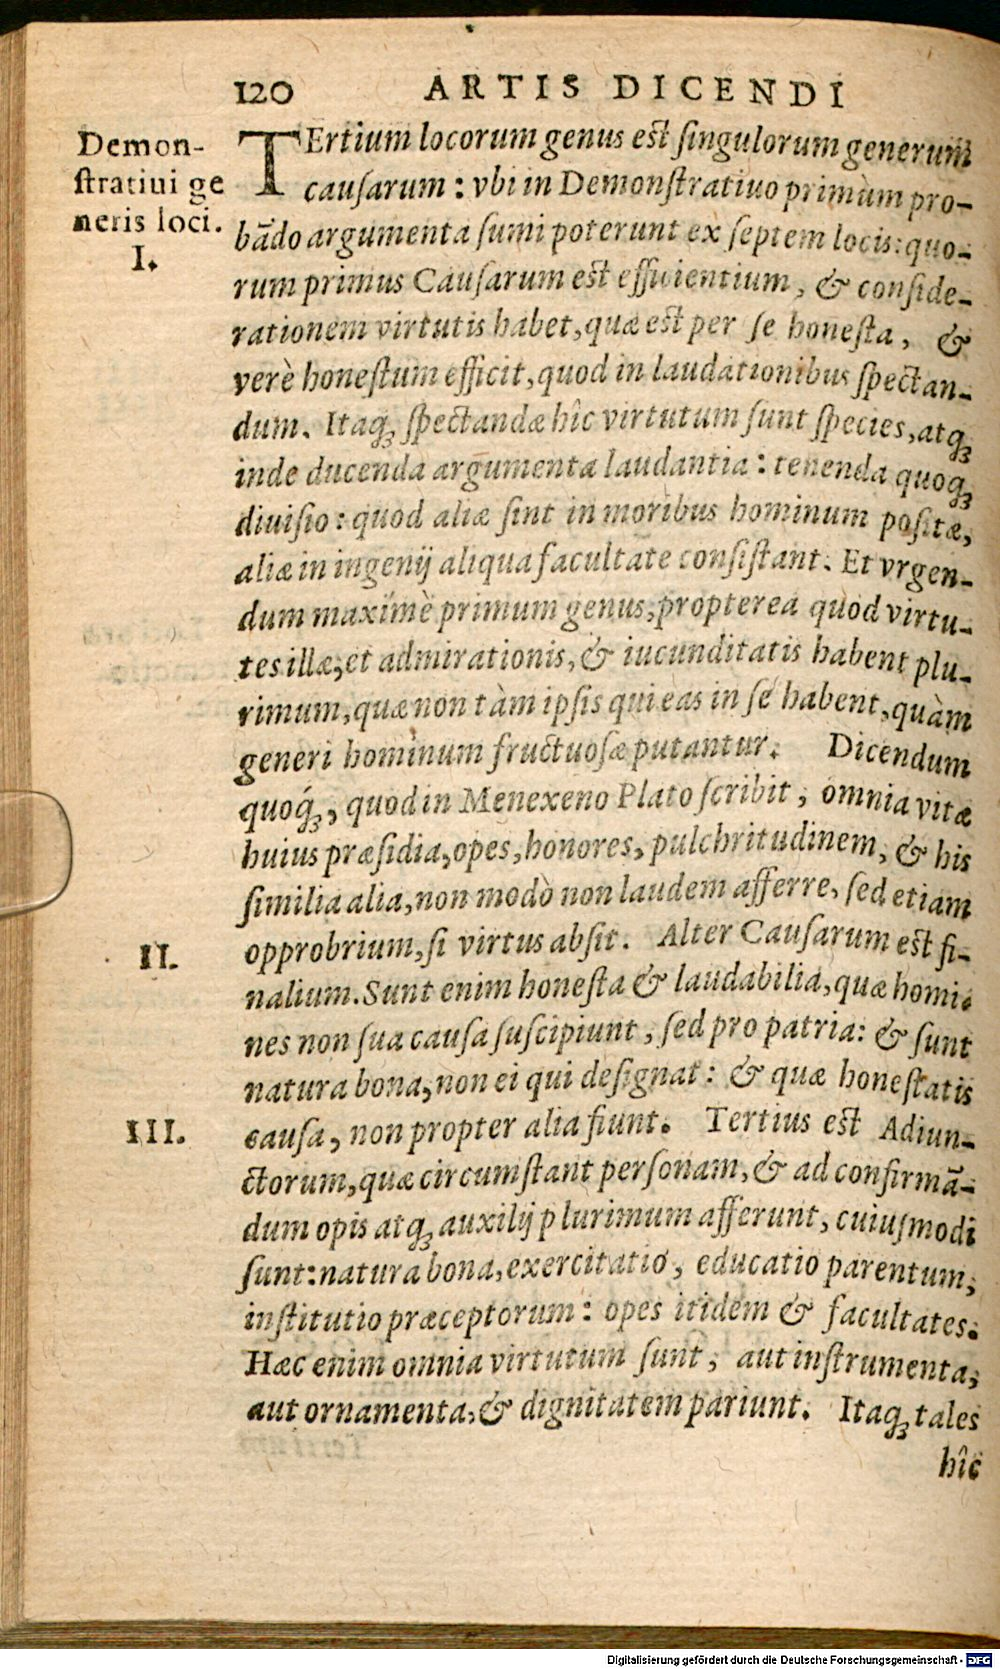 120 ARTIS DICENDI
Demon-
ſtratiui ge
neris loci.
I.
TErtium locorum genus est ſingulorum generum
cauſarum: vbi in Demonſtratiuo primùm pro-
bādo argumenta ſumi poterunt ex ſeptem locis: quo-
rum primus Cauſarum est efficientium, & conſide-
rationem virtutis habet, quæ est per ſe honeſta, &
verè honeſtum efficit, quod in laudationibus ſpectan-
dum. Itaqꝫ ſpectandæ hîc virtutum ſunt ſpecies, atqꝫ
inde ducenda argumenta laudantia: tenenda quoqꝫ
diuiſio: quod aliæ ſint in moribus hominum poſitæ,
aliæ in ingenij aliqua facultate conſiſtant. Et vrgen-
dum maximè primum genus, propterea quod virtu-
tes illæ, et admirationis, & iucunditatis habent plu-
rimum, quæ non tàm ipſis qui eas in ſe habent, quàm
generi hominum fructuoſæ putantur. Dicendum
quoq́ꝫ, quod in Menexeno Plato ſcribit, omnia vitæ
huius præſidia, opes, honores, pulchritudinem, & his
ſimilia alia, non modò non laudem afferre, ſed etiam
opprobrium, ſi virtus abſit. Alter Cauſarum est fi-
II.
nalium. Sunt enim honeſta & laudabilia, quæ homi-
nes non ſua cauſa ſuſcipiunt, ſed pro patria: & ſunt
natura bona, non ei qui deſignat: & quæ honeſtatis
cauſa, non propter alia fiunt. Tertius est Adiun-
III.
ctorum, quæ circumſtant perſonam, & ad confirmā-
dum opis atqꝫ auxilij plurimum afferunt, cuiuſmodi
ſunt: natura bona, exercitatio, educatio parentum,
inſtitutio præceptorum: opes itidem & facultates.
Hæc enim omnia virtutum ſunt, aut inſtrumenta,
aut ornamenta, & dignitatem pariunt. Itaqꝫ tales
hîc
Digitalisierung gefördert durch die Deutsche Forschungsgemeinschaft - DFG